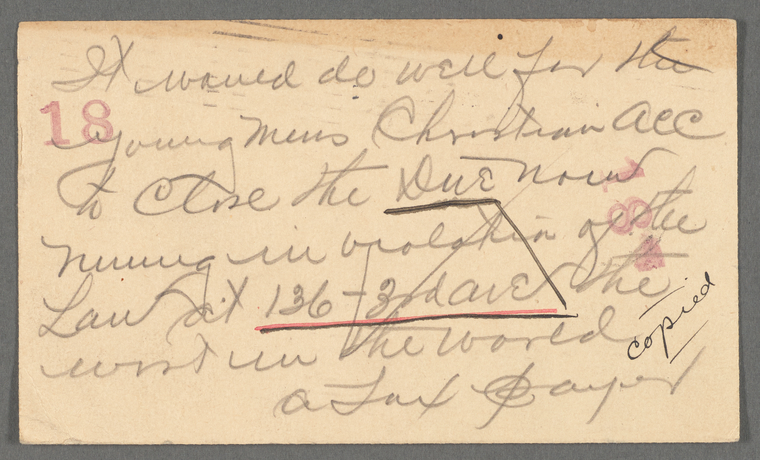 It would do well for the
18
young mens Christian Acc
to Close the Dive now
184
runing in violation of the
Law at 136 - 3rd ave the
worst in the world
copied
a Tax Payer